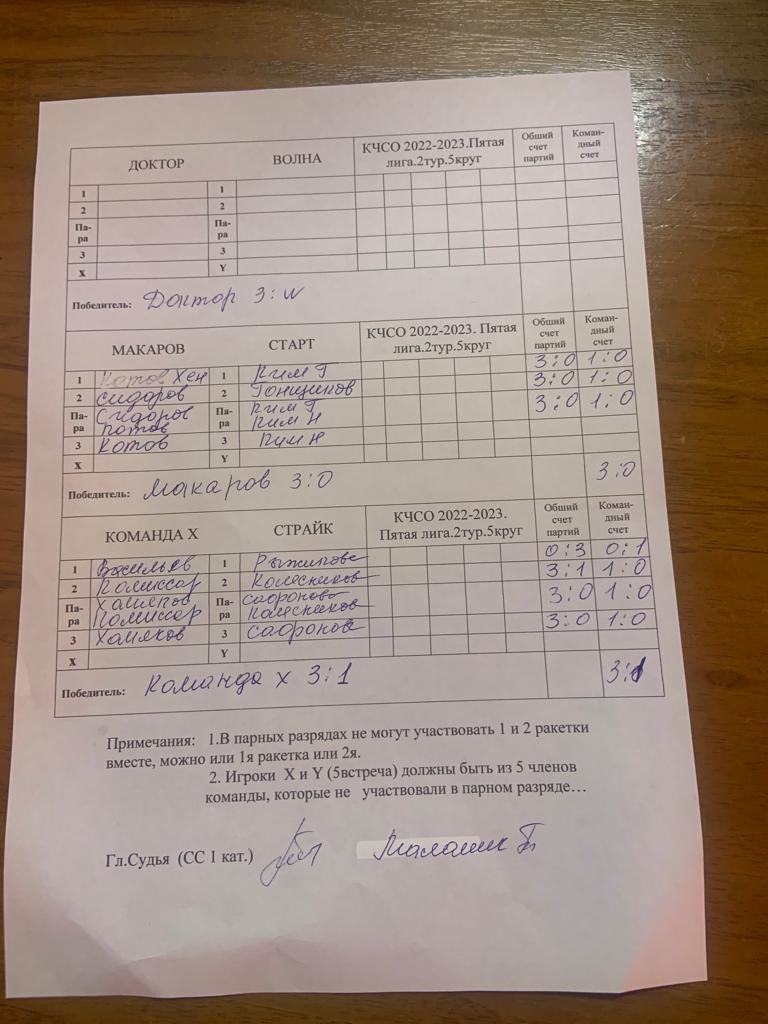 ДОКТОР ВОЛНА КЧСО 2022-2023.Пятая лига.2тур.5круг Обший счет партий Коман-дный счет
1 1
2 2
Па-ра Па-ра
3 3
X Y
Победитель: Доктор 3:w
МАКАРОВ СТАРТ КЧСО 2022-2023. Пятая лига.2тур.5круг Обший счет партий Коман-дный счет
1 Хен 1 Ким Г 3:0 1:0
2 Сидоров 2 Гонщиков 3:0 1:0
Па-ра Сидоров Котов Па-ра Ким Г Ким Н 3:0 1:0
3 Котов 3 Ким Н
X Y
Победитель: Макаров 3:0 3:0
КОМАНДА Х СТРАЙК КЧСО 2022-2023. Пятая лига.2тур.5круг Обший счет партий Коман-дный счет
1 Васильев 1 0:3 0:1
2 Комиссар 2 3:1 1:0
Па-ра Комиссар Па-ра 3:0 1:0
3 Хамяков 3 3:0 1:0
X Y
Победитель: Команда х 3:1 3:1
Примечания: 1.В парных разрядах не могут участвовать 1 и 2 ракетки
вместе, можно или 1я ракетка или 2я.
2. Игроки X и Y (5встреча) должны быть из 5 членов
команды, которые не участвовали в парном разряде…
Гл.Судья (СС 1 кат.)